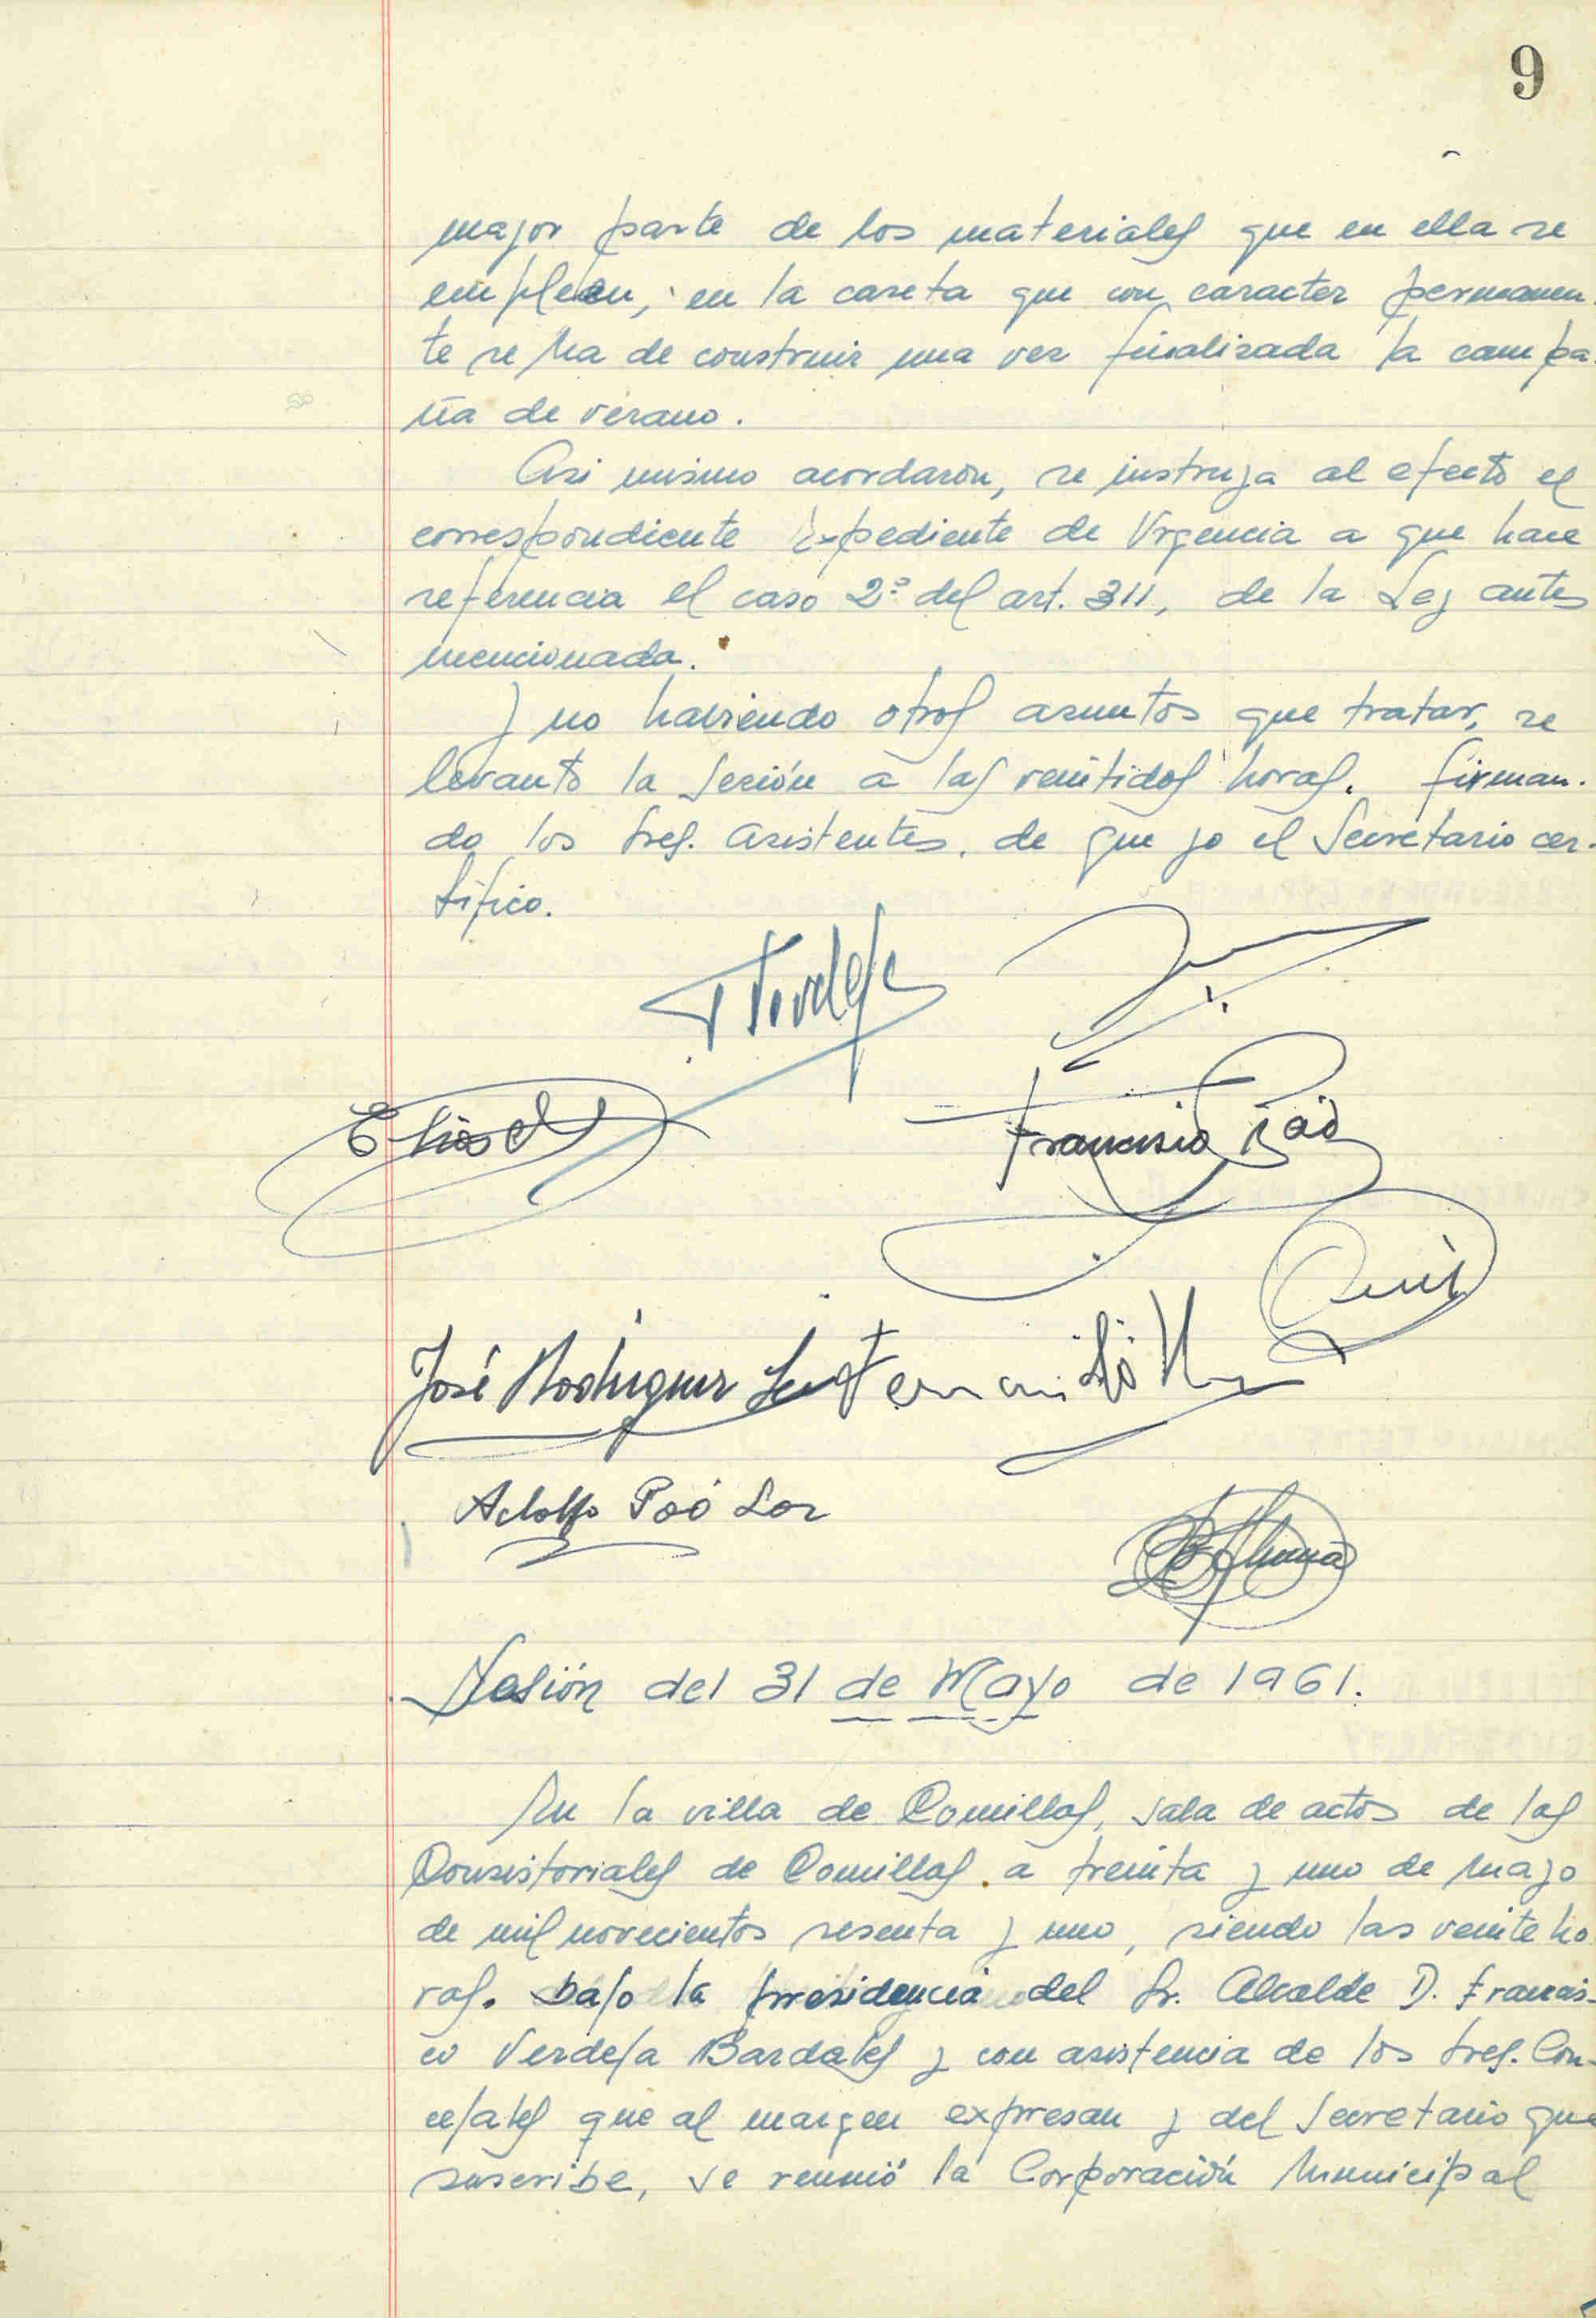 9
mayor parte de los materiales que en ella se
empleen, en la caseta que con caracter permanen-
te se ha de construir una vez finalizada la campa-
ña de verano.
Asi mismo acordaron, se instruya al efecto el
correspondiente Expediente de Urgencia a que hace
referencia el caso 2º del art. 311, de la Ley antes
mencionada.
Y no habiendo otros asuntos que tratar, se
levanto la Sesión a las veintidos horas. firman-
do los Sres. asistentes, de que yo el Secretario cer-
tifico.
F Verdeja
Elias
Francisco Poo
José Rodriguez
Fernando
Adolfo Poó Lor
Sesión del 31 de Mayo de 1961.
En la villa de Comillas, sala de actos de las
Consistoriales de Comillas, a treinta y uno de mayo
de mil novecientos sesenta y uno, siendo las veinte ho
ras. bajo la presidencia del Sr. Alcalde D. Francis-
co Verdeja Bardales y con asistencia de los Sres. Con-
cejales que al margen expresan y del Secretario que
suscribe, se reunió la Corporación Municipal